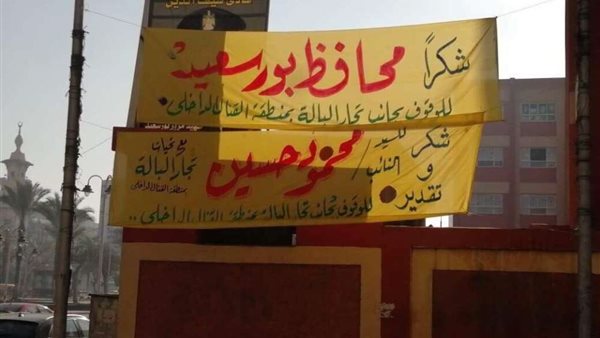 شكراً محافظ بورسعيد
للوقوف بجانب تجار البالة بمنطقة القنال الداخلى
شكر و تقدير
للسيد النائب / محمود حسين
مع تحيات
تجار البالة
بمنطقة القنال الداخلى
للوقوف بجانب تجار البالة بمنطقة القنال الداخلى ..